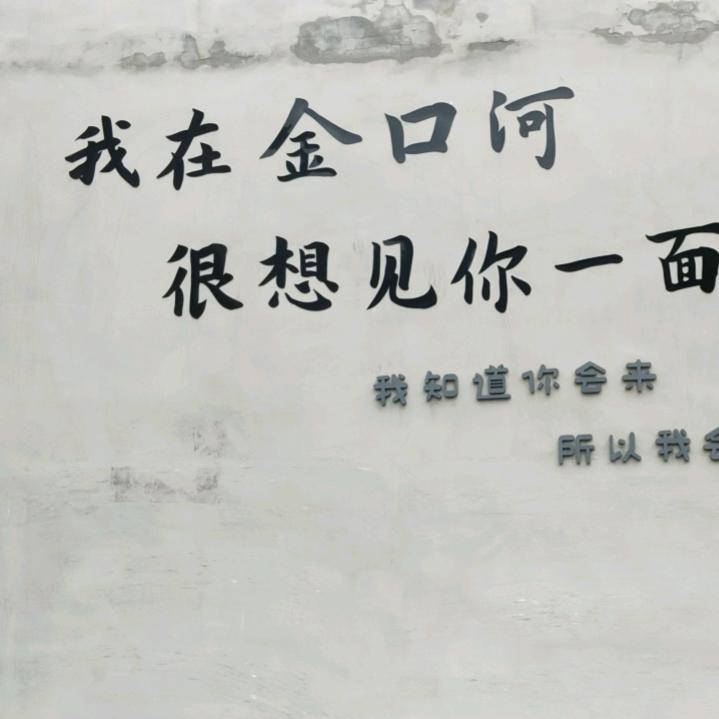 我在金口河
很想见你一面
我知道你会来
所以我会